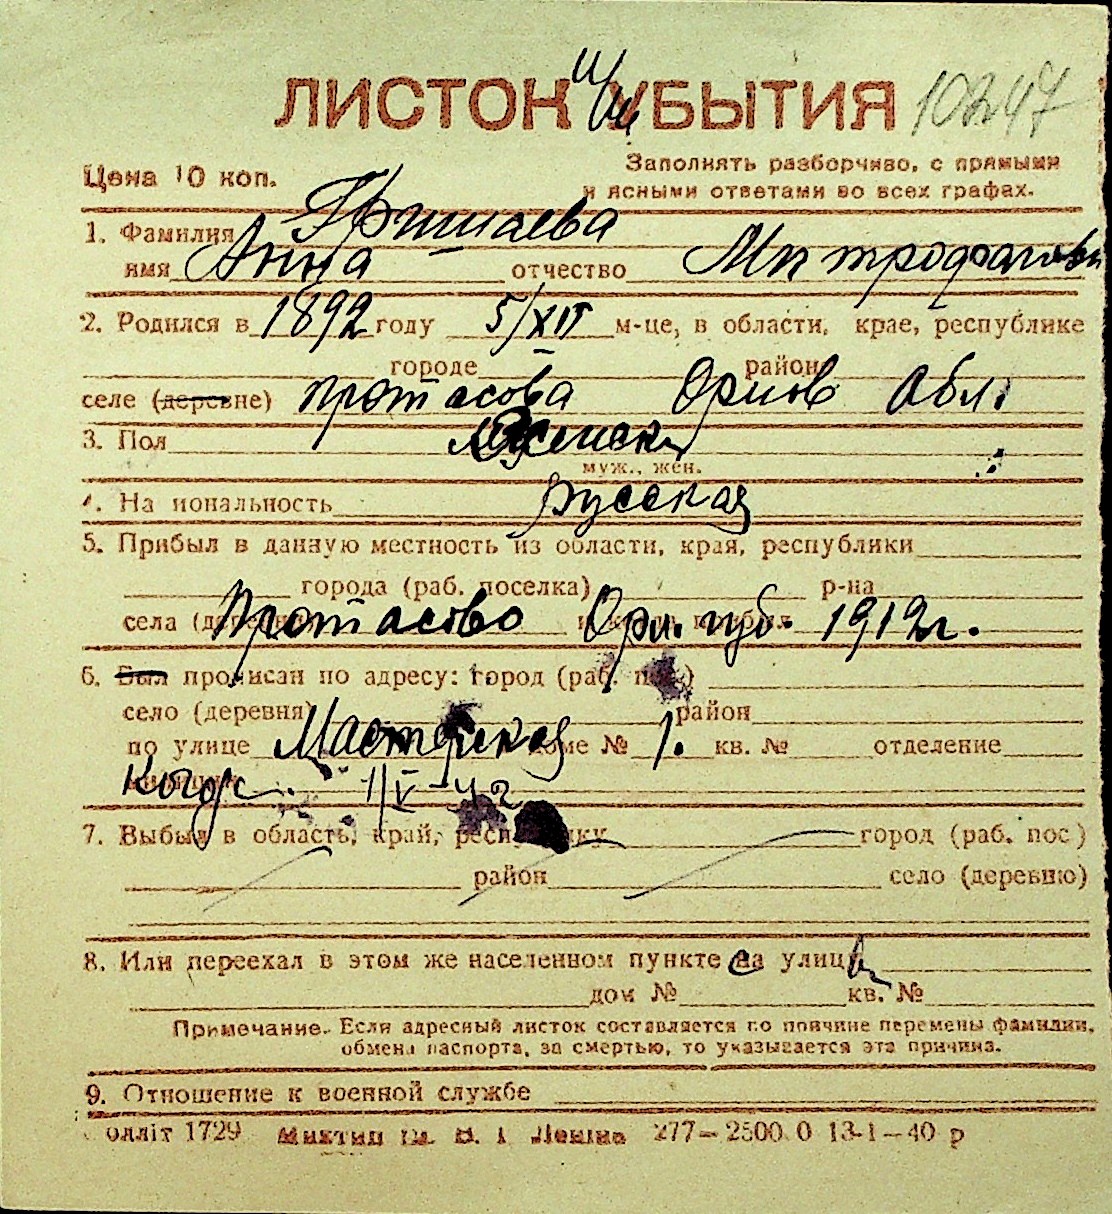 ЛИСТОК УБЫТИЯ 10347
Цена 10 коп.
Заполнять разборчиво, с прямыми
и ясными ответами во всех графах.
1. Фамилия Гришаева
имя Анна отчество Митрофанов
2. Родился в 1892 году 5/XII м-це, в области, крае, республике
городе район
селе (деревне) Протасова Орлов Обл.
3. Пол Женск
муж., жен.
4. На иональность Русская
5. Прибыл в данную местность из области, края, республики
города (раб. поселка) р-на
села Протасово Орл. губ. 1912 г.
6. Был прописан по адресу: город (раб. пос.)
село (деревня) район
по улице Мастерская доме № 1. кв. № отделение
1/V-42
7. Выбыл в область, край, республику город (раб. пос)
район село (деревню)
8. Или переехал в этом же населенном пункте на улицу
дом № кв. №
Примечание. Если адресный листок составляется по причине перемены фамилии,
обмена паспорта, за смертью, то указывается эта причина.
9. Отношение к военной службе
олліт 1729 277—2500 0 13-1—40 р